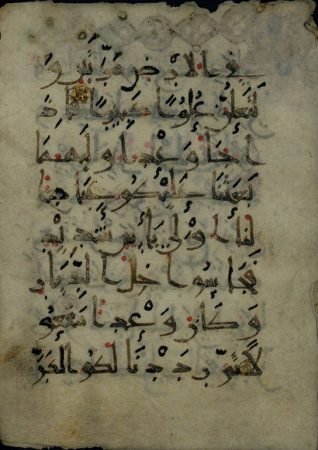 في الأرض مرتين و
لتعلن علوا كبيرا فإذ
ا جاء وعد أوليهما
بعثنا عليكم عبادا
لنا أولي بأس شديد
فجاسوا خلل الديار
وكان وعدا مفعو
لا ثم رددنا لكم الكر